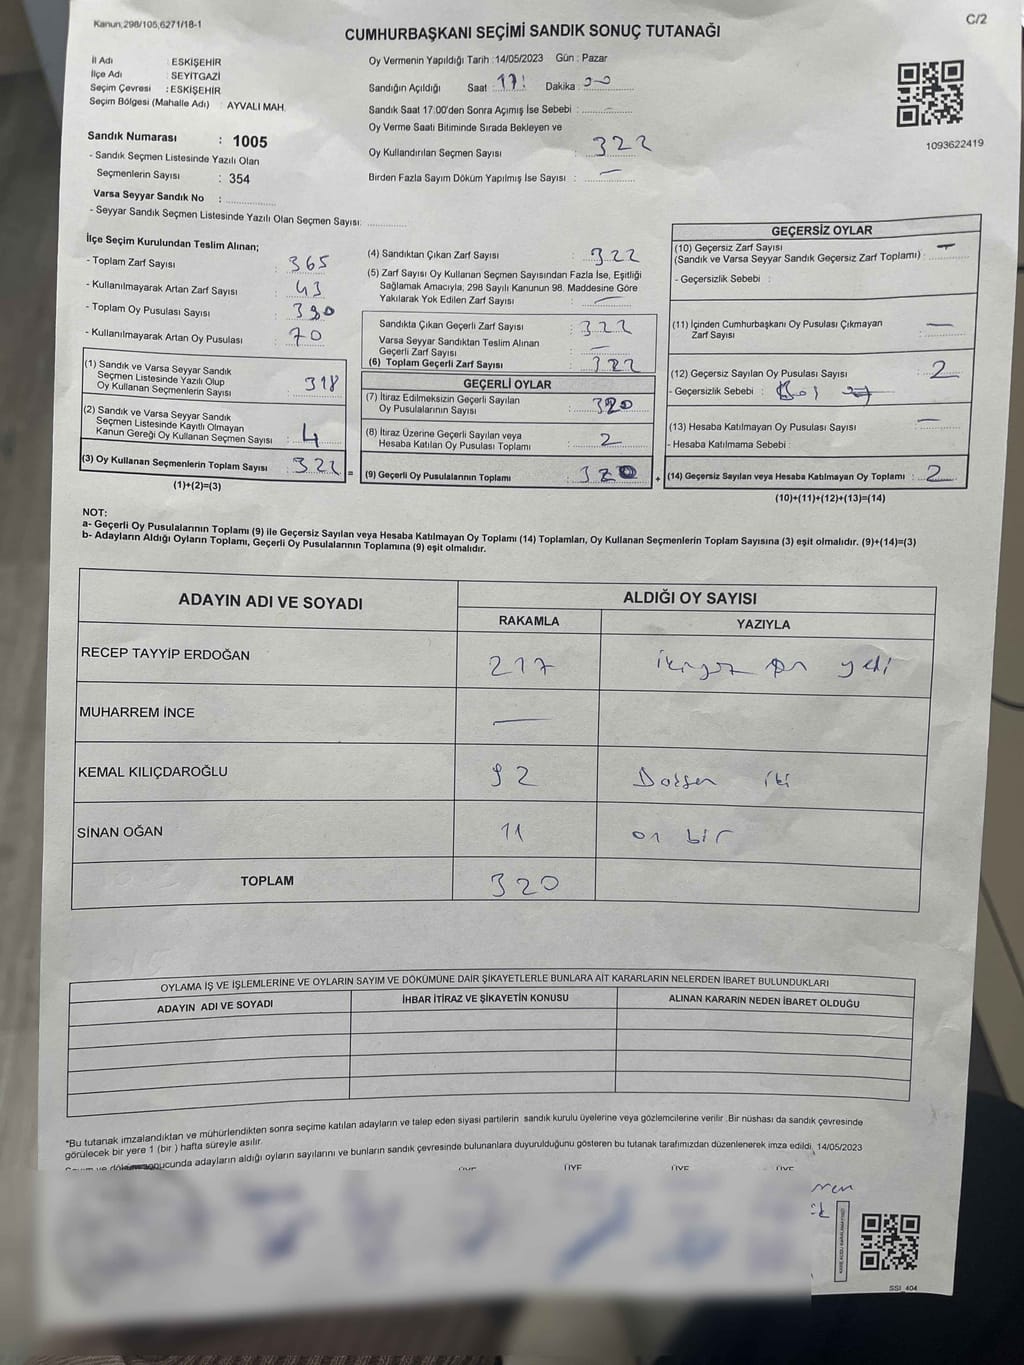 Kanun,298/105,6271/18-1
C/2
CUMHURBAŞKANI SEÇİMİ SANDIK SONUÇ TUTANAĞI
İl Adı : ESKİŞEHİR
İlçe Adı : SEYİTGAZİ
Seçim Çevresi : ESKİŞEHİR
Seçim Bölgesi (Mahalle Adı) : AYVALI MAH.
Sandık Numarası : 1005
- Sandık Seçmen Listesinde Yazılı Olan
Seçmenlerin Sayısı : 354
Varsa Seyyar Sandık No :
- Seyyar Sandık Seçmen Listesinde Yazılı Olan Seçmen Sayısı:
Oy Vermenin Yapıldığı Tarih :14/05/2023 Gün : Pazar
Sandığın Açıldığı Saat : 17: Dakika : 00
Sandık Saat 17:00'den Sonra Açımış İse Sebebi :
Oy Verme Saati Bitiminde Sırada Bekleyen ve
Oy Kullandırılan Seçmen Sayısı : 322
Birden Fazla Sayım Döküm Yapılmış İse Sayısı : —
1093622419
İlçe Seçim Kurulundan Teslim Alınan;
- Toplam Zarf Sayısı : 365
- Kullanılmayarak Artan Zarf Sayısı : 43
- Toplam Oy Pusulası Sayısı : 390
- Kullanılmayarak Artan Oy Pusulası : 70
(1) Sandık ve Varsa Seyyar Sandık
Seçmen Listesinde Yazılı Olup
Oy Kullanan Seçmenlerin Sayısı : 318
(2) Sandık ve Varsa Seyyar Sandık
Seçmen Listesinde Kayıtlı Olmayan
Kanun Gereği Oy Kullanan Seçmen Sayısı : 4
(3) Oy Kullanan Seçmenlerin Toplam Sayısı : 322 =
(1)+(2)=(3)
(4) Sandıktan Çıkan Zarf Sayısı : 322
(5) Zarf Sayısı Oy Kullanan Seçmen Sayısından Fazla İse, Eşitliği
Sağlamak Amacıyla, 298 Sayılı Kanunun 98. Maddesine Göre
Yakılarak Yok Edilen Zarf Sayısı : —
Sandıkta Çıkan Geçerli Zarf Sayısı : 322
Varsa Seyyar Sandıktan Teslim Alınan
Geçerli Zarf Sayısı : —
(6) Toplam Geçerli Zarf Sayısı : 322
GEÇERLİ OYLAR
(7) İtiraz Edilmeksizin Geçerli Sayılan
Oy Pusulalarının Sayısı : 320
(8) İtiraz Üzerine Geçerli Sayılan veya
Hesaba Katılan Oy Pusulası Toplamı : 2
(9) Geçerli Oy Pusulalarının Toplamı : 320 +
GEÇERSİZ OYLAR
(10) Geçersiz Zarf Sayısı
(Sandık ve Varsa Seyyar Sandık Geçersiz Zarf Toplamı) : —
- Geçersizlik Sebebi :
(11) İçinden Cumhurbaşkanı Oy Pusulası Çıkmayan
Zarf Sayısı : —
(12) Geçersiz Sayılan Oy Pusulası Sayısı : 2
- Geçersizlik Sebebi :
(13) Hesaba Katılmayan Oy Pusulası Sayısı : —
- Hesaba Katılmama Sebebi :
(14) Geçersiz Sayılan veya Hesaba Katılmayan Oy Toplamı : 2
(10)+(11)+(12)+(13)=(14)
NOT:
a- Geçerli Oy Pusulalarının Toplamı (9) ile Geçersiz Sayılan veya Hesaba Katılmayan Oy Toplamı (14) Toplamları, Oy Kullanan Seçmenlerin Toplam Sayısına (3) eşit olmalıdır. (9)+(14)=(3)
b- Adayların Aldığı Oyların Toplamı, Geçerli Oy Pusulalarının Toplamına (9) eşit olmalıdır.
ADAYIN ADI VE SOYADI
ALDIĞI OY SAYISI
RAKAMLA YAZIYLA
RECEP TAYYİP ERDOĞAN 217 ikiyüz on yedi
MUHARREM İNCE —
KEMAL KILIÇDAROĞLU 92 Doksan iki
SİNAN OĞAN 11 on bir
TOPLAM 320
OYLAMA İŞ VE İŞLEMLERİNE VE OYLARIN SAYIM VE DÖKÜMÜNE DAİR ŞİKAYETLERLE BUNLARA AİT KARARLARIN NELERDEN İBARET BULUNDUKLARI
ADAYIN ADI VE SOYADI İHBAR İTİRAZ VE ŞİKAYETİN KONUSU ALINAN KARARIN NEDEN İBARET OLDUĞU
*Bu tutanak imzalandıktan ve mühürlendikten sonra seçime katılan adayların ve talep eden siyasi partilerin sandık kurulu üyelerine veya gözlemcilerine verilir .Bir nüshası da sandık çevresinde
görülecek bir yere 1 (bir ) hafta süreyle asılır.
Sayım ve döküm sonucunda adayların aldığı oyların sayılarını ve bunların sandık çevresinde bulunanlara duyurulduğunu gösteren bu tutanak tarafımızdan düzenlenerek imza edildi. 14/05/2023
ÜYE ÜYE ÜYE ÜYE
SSI_404